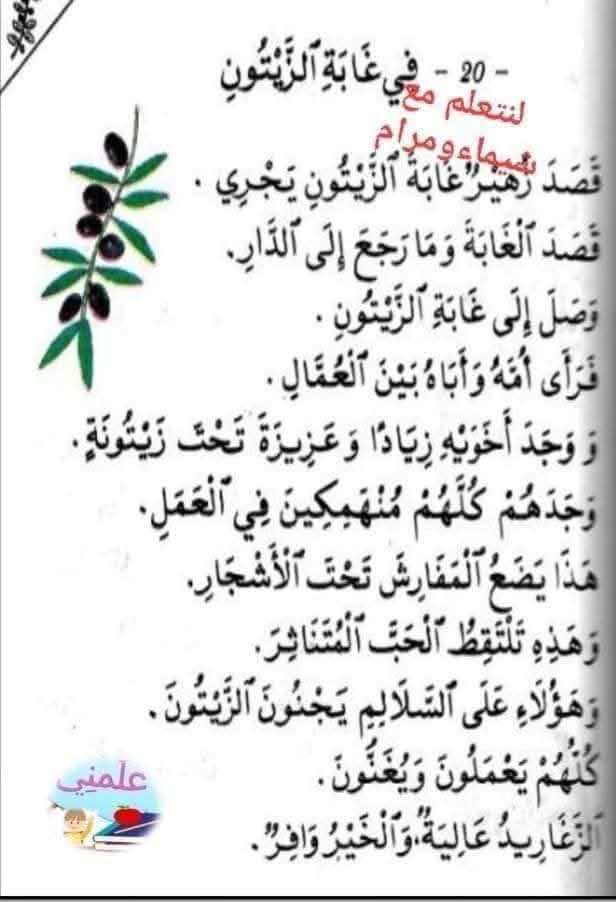 - 20 - فِي غَابَةِ ٱلزَّيْتُونِ
لنتعلم مع
شيماء ومرام
قَصَدَ زُهَيْرٌ غَابَةَ ٱلزَّيْتُونِ يَجْرِي .
قَصَدَ ٱلْغَابَةَ وَمَا رَجَعَ إِلَى ٱلدَّارِ.
وَصَلَ إِلَى غَابَةِ ٱلزَّيْتُونِ .
فَرَأَى أُمَّهُ وَأَبَاهُ بَيْنَ ٱلْعُمَّالِ .
وَ وَجَدَ أَخَوَيْهِ زِيَادًا وَ عَزِيزَةَ تَحْتَ زَيْتُونَةٍ .
وَجَدَهُمْ كُلَّهُمْ مُنْهَمِكِينَ فِي ٱلْعَمَلِ.
هَذَا يَضَعُ ٱلْمَفَارِشَ تَحْتَ ٱلْأَشْجَارِ.
وَهَذِهِ تَلْتَقِطُ ٱلْحَبَّ ٱلْمُتَنَاثِرَ.
وَهَؤُلَاءِ عَلَى ٱلسَّلَالِمِ يَجْنُونَ ٱلزَّيْتُونَ .
كُلُّهُمْ يَعْمَلُونَ وَيُغَنُّونَ .
ٱلزَّغَارِيدُ عَالِيَةٌ، وَٱلْخَيْرُ وَافِرٌ .
علمني